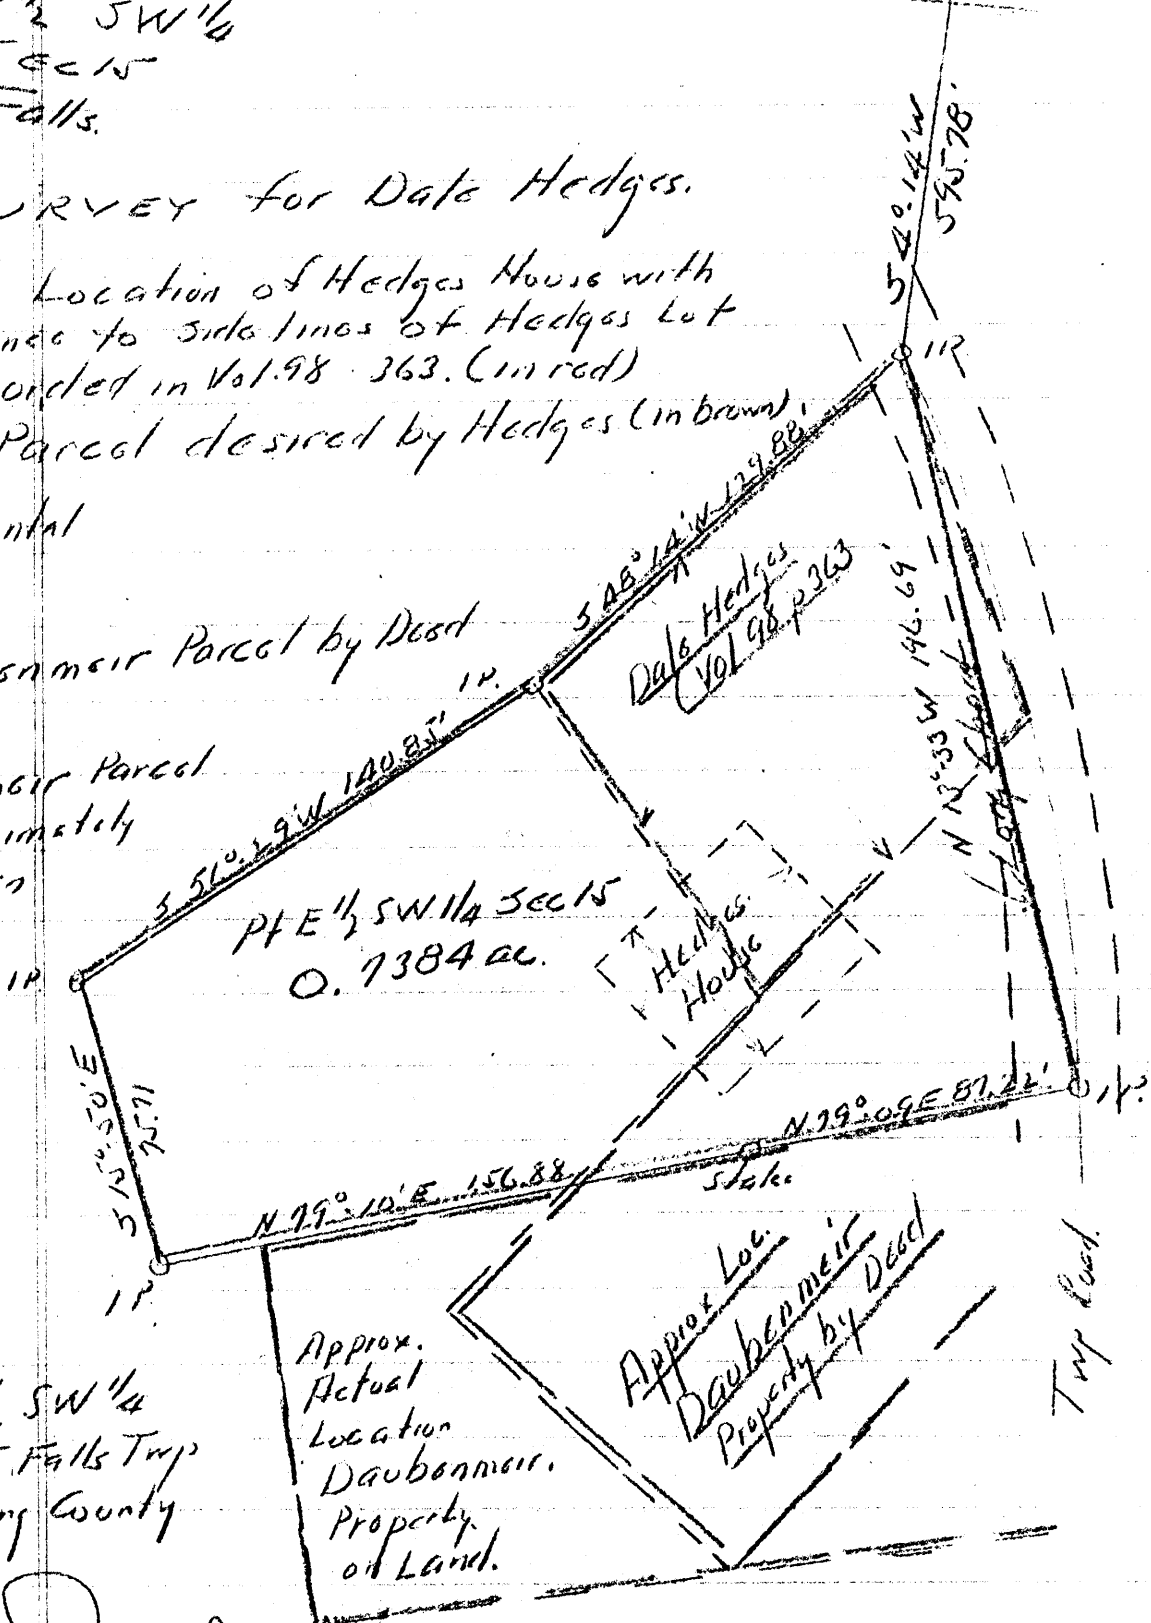 SW 1/4
Sec 15
Falls.
URVEY for Dale Hedges.
Location of Hedges House with
nce to side lines of Hedges Lot
orded in Vol. 98 363. (in red)
Parcel desired by Hedges (in brown).
ntal
enmeir Parcel by Deed
eir Parcel
imately
S 4°. 14' W
595.78'
I.P.
S 48° 14' W 129.88
Dale Hedges
(Vol. 98 p 363
196.69'
Long Chord
I.P.
S 51°. 29' W 140.85'
Pt E 1/2 SW 1/4 Sec 15
0.7384 ac.
Hedges
House
I.P.
S 15°. 50' E
75.71
I.P.
N 79°. 10' E 156.88
Stake
N. 79°. 09 E 87.22'
I.P.
Twp Road.
Approx Loc.
Daubenmeir
Property by Deed
Approx.
Actual
Location
Daubenmeir.
Property
on Land.
SW 1/4
Falls Twp
ng County